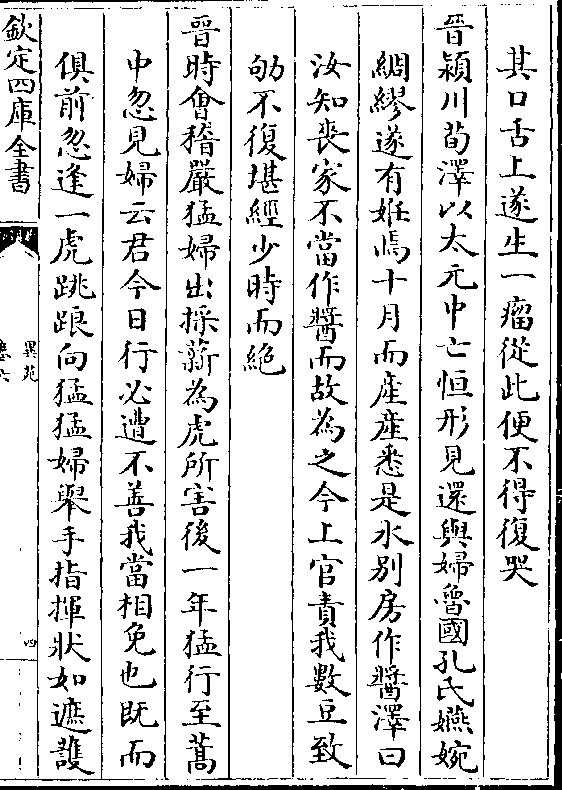 其口舌上遂生一瘤從此便不得復哭
晉潁川荀澤以太元中亡恒形見還與婦魯國孔氏嬿婉
綢繆遂有娠焉十月而產產悉是水别房作醬澤曰
汝知喪家不當作醬而故為之今上官責我數豆致
劬不復堪經少時而絶
晉時㑹稽嚴猛婦出採薪為虎所害後一年猛行至蒿
中忽見婦云君今日行必遭不善我當相免也既而
俱前忽逢一虎跳踉向猛猛婦舉手指揮狀如遮護
欽定四庫全書
異苑
卷六
四